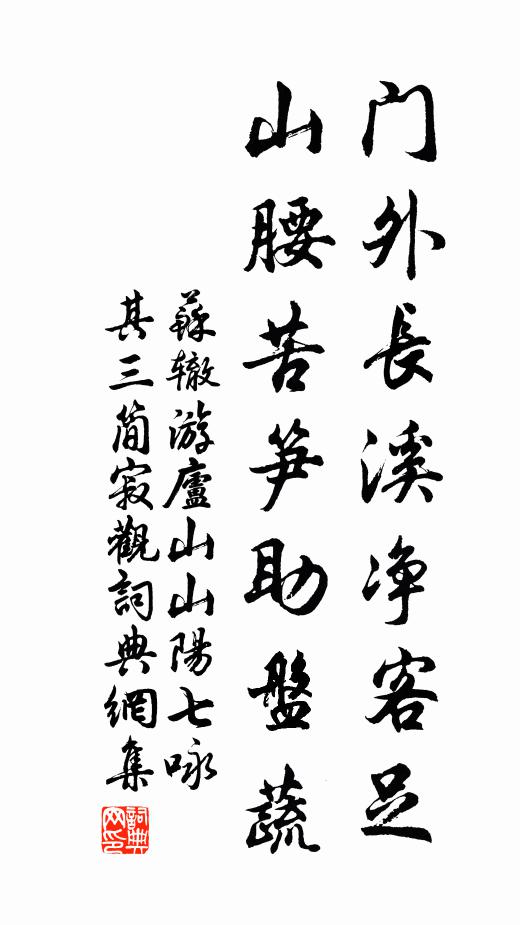 门外長溪净客足
山腰苦笋助盤蔬
蘇辙游廬山山陽七咏
其三簡寂觀詞典網集
詞典网印